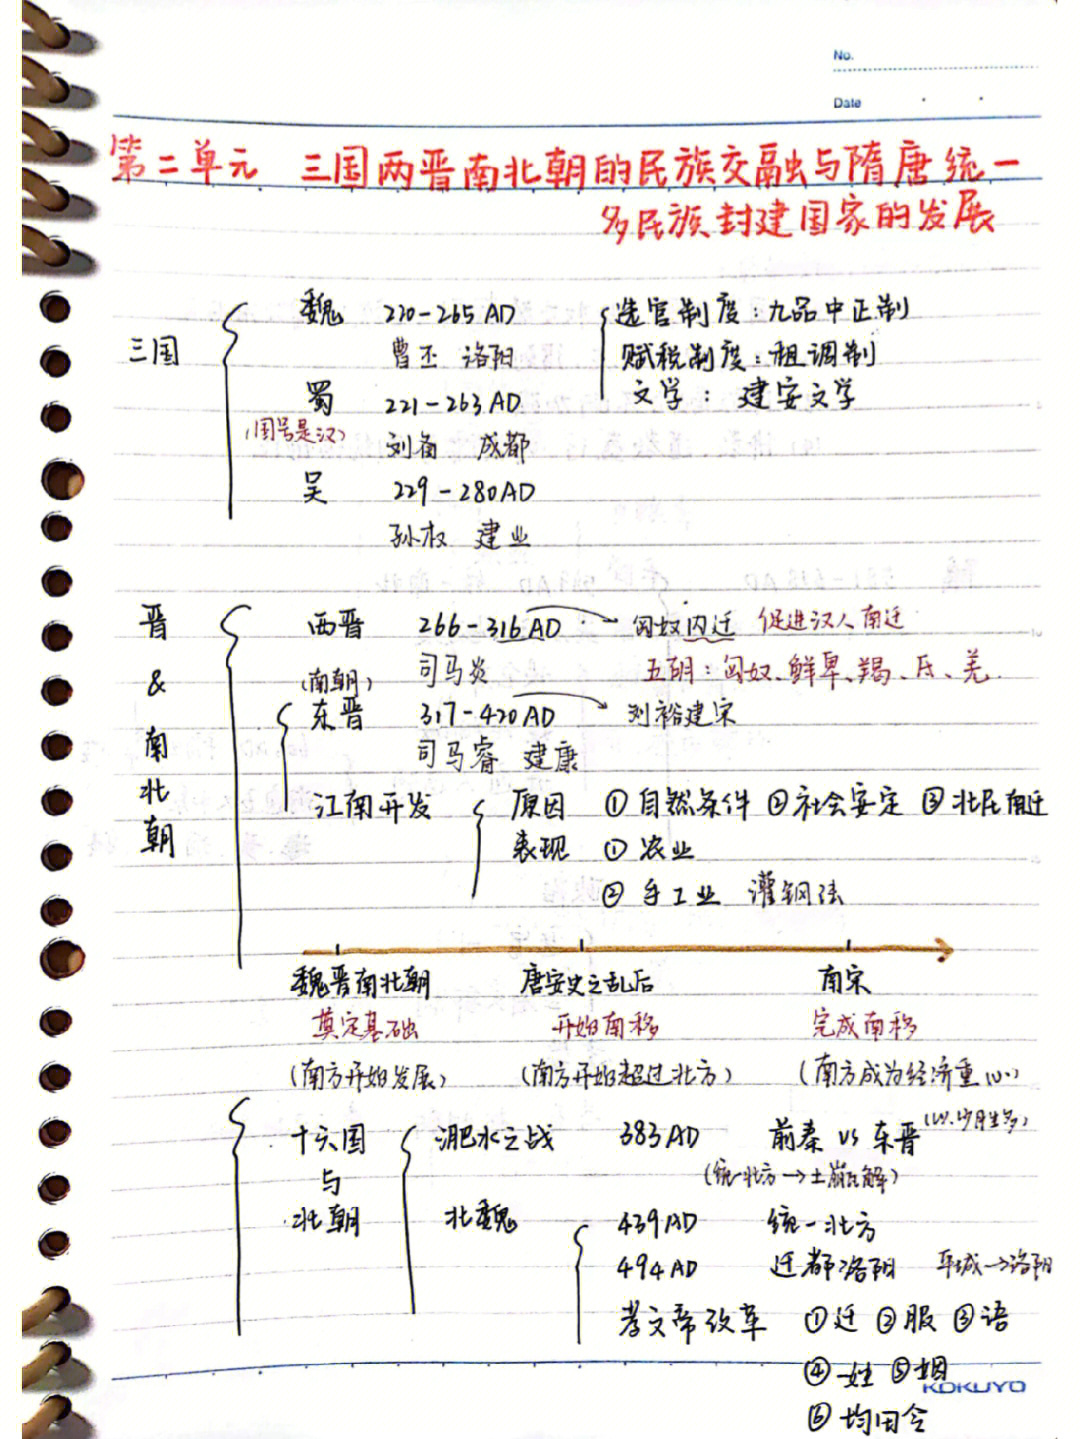 No.
Date
第二单元 三国两晋南北朝的民族交融与隋唐统一
多民族封建国家的发展
三国
魏 220-265AD 选官制度：九品中正制
曹丕 洛阳 赋税制度：租调制
蜀 221-263AD 文学：建安文学
(国号是汉) 刘备 成都
吴 229-280AD
孙权 建业
晋&南北朝
西晋 266-316AD 匈奴内迁 促进汉人南迁
(南朝) 司马炎 五胡：匈奴、鲜卑、羯、氐、羌
东晋 317-420AD 刘裕建宋
司马睿 建康
江南开发 原因 ①自然条件 ②社会安定 ③北民南迁
表现 ①农业
②手工业 灌钢法
魏晋南北朝 唐安史之乱后 南宋
奠定基础 开始南移 完成南移
(南方开始发展) (南方开始超过北方) (南方成为经济重心)
十六国与北朝
淝水之战 383AD 前秦 vs 东晋 (以少胜多)
(统一北方→土崩瓦解)
北魏 439AD 统一北方
494AD 迁都洛阳 平城→洛阳
孝文帝改革 ①迁 ②服 ③语
④姓 ⑤姻
KOKUYO
⑥均田令